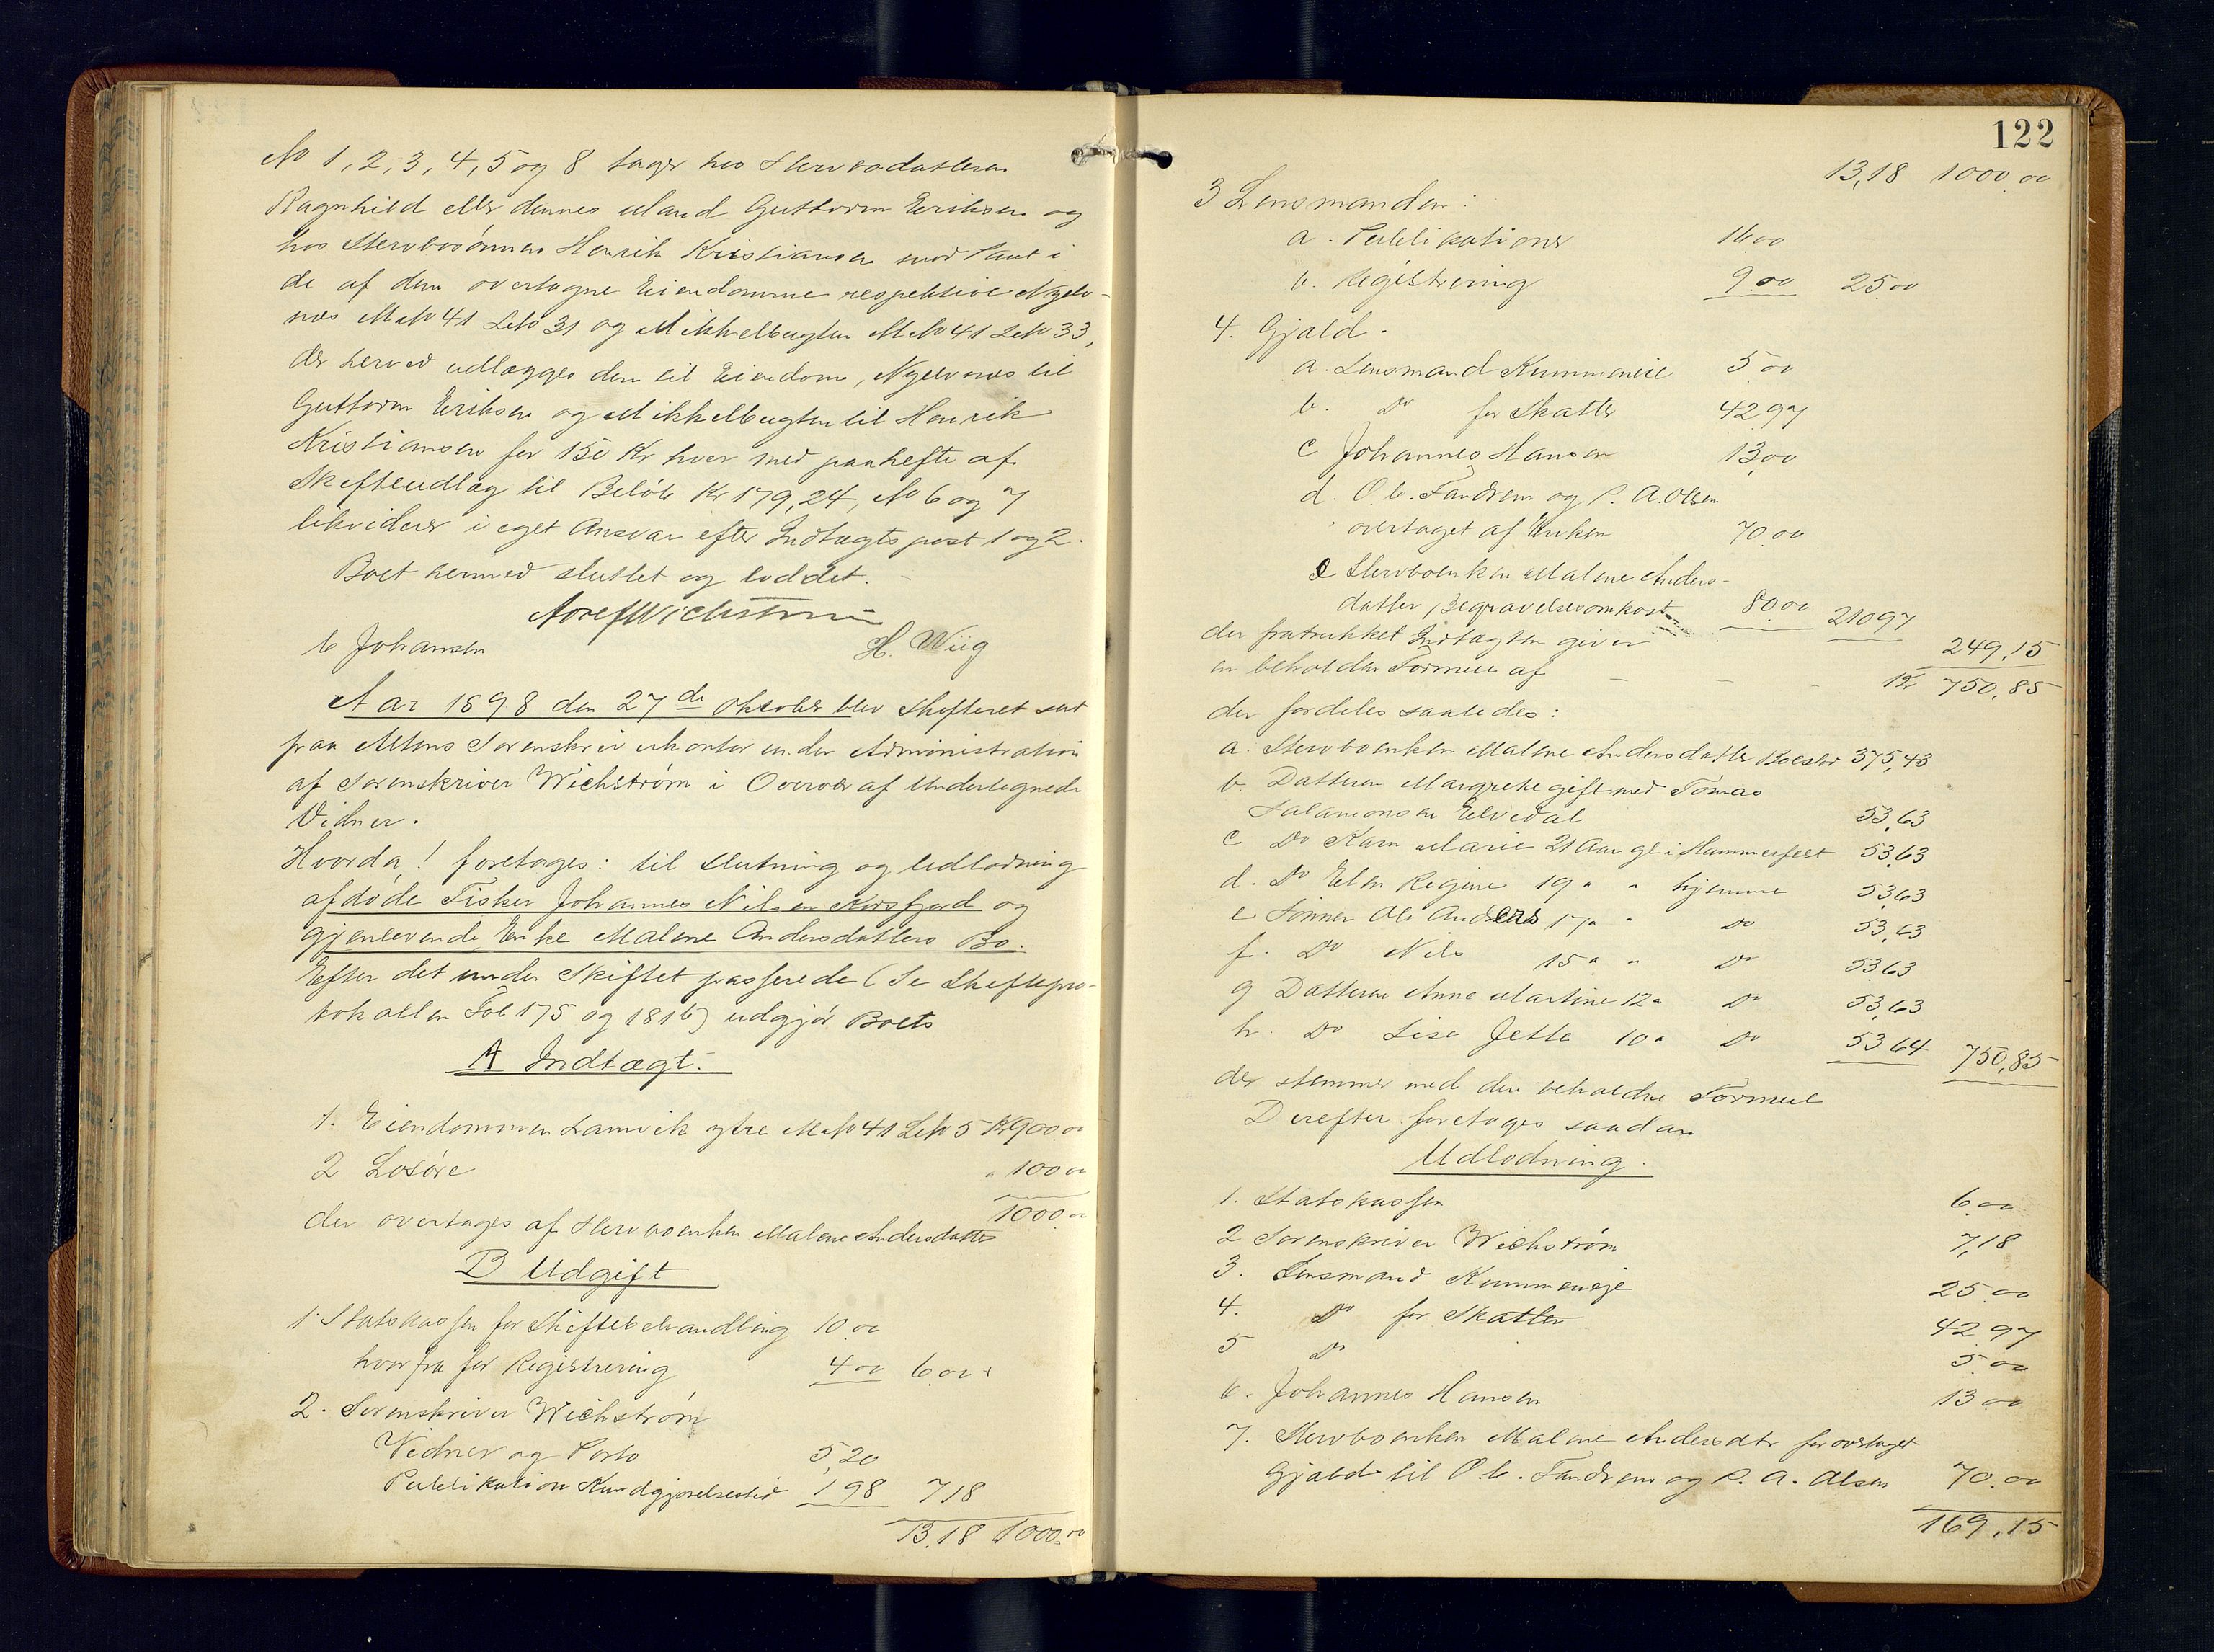 No 1, 2, 3, 4, 5 og 8 tages hos Stervbodatteren
Ragnhild eller dennes Mand Guttorm Eriksen og
hos Stervbosønnen Henrik Kristiansen mod Pant i
de af dem overtagne Eiendomme respektive Nyelv-
næs MNo 41 LNo 31 og Mikkelbugten MNo 41 LNo 33,
der herved udlægges dem til Eiendom, Nyelvnæs til
Guttorm Eriksen og Mikkelbugten til Henrik
Kristiansen for 150 Kr hver med paahefte af
Skifteudlæg til Beløb Kr 179,24, No 6 og 7
likviderer i eget Ansvar efter Indtægts post 1 og 2.
Boet hermed sluttet og loddet.
Wichstrøm
C Johansen H. Wiig
Aar 1898 den 27de Oktober blev Skifteret sat
paa Altens Sorenskriverkontor under Administration
af Sorenskriver Wichstrøm i Overvær af Undertegnede
Vidner.
Hvorda! foretoges: til Slutning og Udlodning
afdøde Fisker Johannes Nilsen Korsfjord og
gjenlevende Enke Malene Andersdatters Bo.
Efter det under Skiftet passerede (Se Skiftepro-
tokollen Fol 175 og 181b) udgjør Boets
A Indtægt.
1. Eiendommen Lamvik ytre MNo 41 LNo 5 Kr 900.00
2 Løsøre " 100.00
1000.00
der overtages af Stervboenken Malene Andersdatter
B Udgift
1. Statskassen for Skiftebehandling 10.00
hvorfra for Registrering 4.00 6.00
2. Sorenskriver Wichstrøm
Vidner og Porto 5,20
Publikation Kundgjørelsestid 1.98 7.18
13.18 1000.00
122
13,18 1000.00
3 Lensmanden:
a. Publikationer 16.00
b. Registrering 9.00 25.00
4. Gjæld.
a. Lensmand Kummeneje 5.00
b. Do for Skatter 42.97
c Johannes Hansen 13.00
d. O. C. Fandrem og P. A. Olsen
overtaget af Enken 70.00
e Stervboenken Malene Anders-
datter, Begravelsesomkost. 80.00 210.97
249.15
der fratrukket Indtægten giver
en beholden Formue af Kr 750.85
der fordeles saaledes:
a. Stervboenken Malene Andersdatter Boeslod 375,43
b. Datteren Margrete gift med Tomas
Salamonsen Elvedal 53,63
c Do Karen Marie 21 Aar gl i Hammerfest 53,63
d. Do Elen Regine 19 " " hjemme 53,63
e Sønnen Ole Anders 17 " " Do 53,63
f. Do Nils 15 " " Do 53,63
g Datteren Anna Martine 12 " Do 53,63
h. Do Lise Jette 10 " Do 53.64 750,85
der stemmer med den beholdne Formue
Derefter foretoges saadan
Udlodning.
1. Statskassen 6.00
2 Sorenskriver Wichstrøm 7,18
3. Lensmand Kummeneje 25.00
4. Do for Skatter 42.97
5 Do 5.00
6. Johannes Hansen 13.00
7. Stervboenken Malene Andersdtr for overtaget
Gjæld til O. C. Fandrem og P. A. Olsen 70.00
169.15